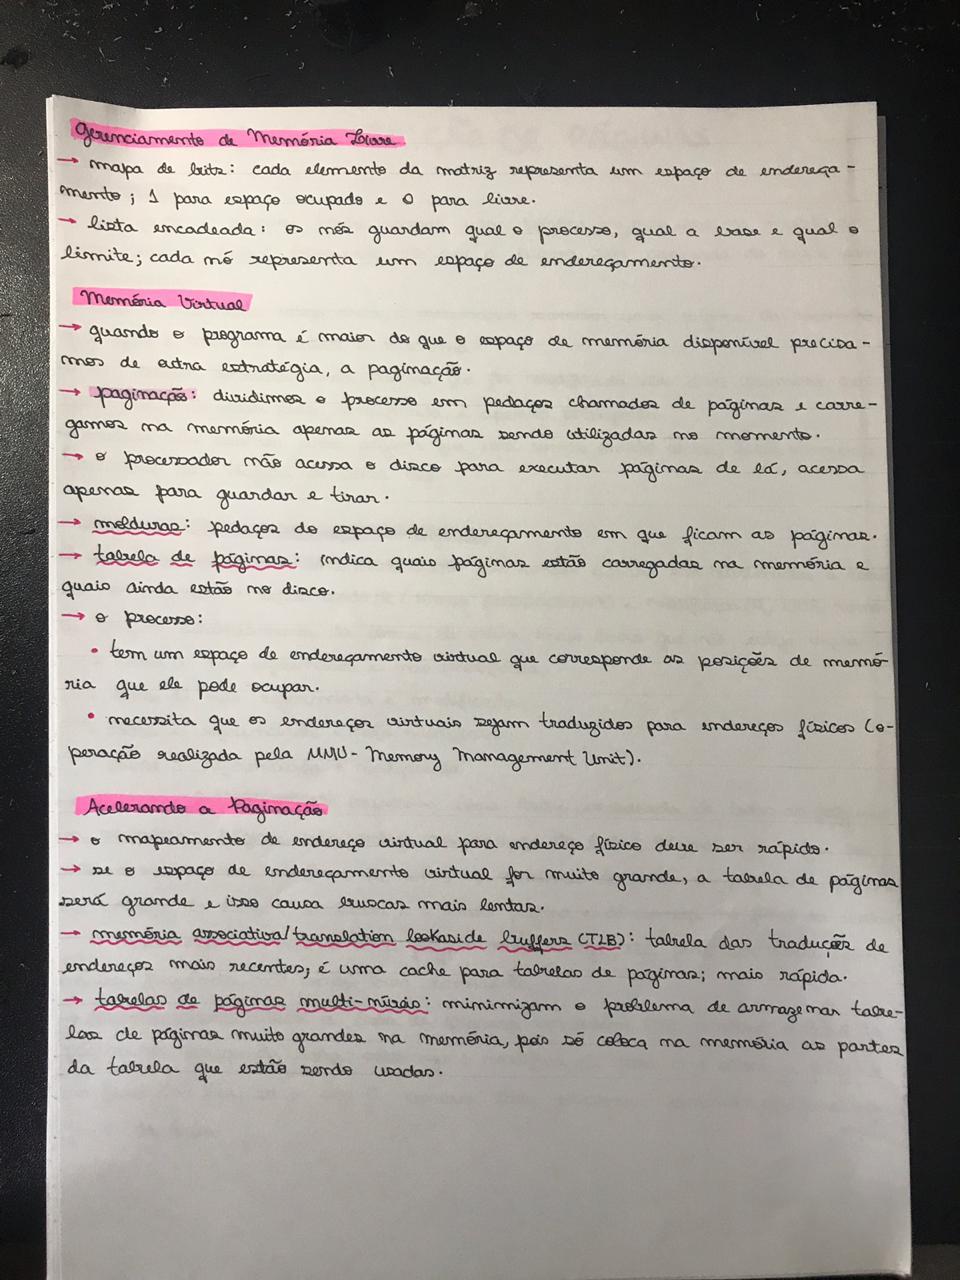 Gerenciamento de Memória Livre
→ mapa de bits: cada elemento da matriz representa um espaço de endereça-
mento; 1 para espaço ocupado e 0 para livre.
→ lista encadeada: os nós guardam qual o processo, qual a base e qual o
limite; cada nó representa um espaço de endereçamento.
Memória Virtual
→ quando o programa é maior do que o espaço de memória disponível precisa-
mos de outra estratégia, a paginação.
→ paginação: dividimos o processo em pedaços chamados de páginas e carre-
gamos na memória apenas as páginas sendo utilizadas no momento.
→ o processador não acessa o disco para executar páginas de lá, acessa
apenas para guardar e tirar.
→ molduras: pedaços do espaço de endereçamento em que ficam as páginas.
→ tabela de páginas: indica quais páginas estão carregadas na memória e
quais ainda estão no disco.
→ o processo:
• tem um espaço de endereçamento virtual que corresponde as posições de memó-
ria que ele pode ocupar.
• necessita que os endereços virtuais sejam traduzidos para endereços físicos (o-
peração realizada pela MMU - Memory Management Unit).
Acelerando a Paginação
→ o mapeamento de endereço virtual para endereço físico deve ser rápido.
→ se o espaço de endereçamento virtual for muito grande, a tabela de páginas
será grande e isso causa buscas mais lentas.
→ memória associativa/translation lookaside buffers (TLB): tabela das traduções de
endereços mais recentes; é uma cache para tabelas de páginas; mais rápida.
→ tabelas de páginas multi-níveis: minimizam o problema de armazenar tabe-
las de páginas muito grandes na memória, pois só coloca na memória as partes
da tabela que estão sendo usadas.